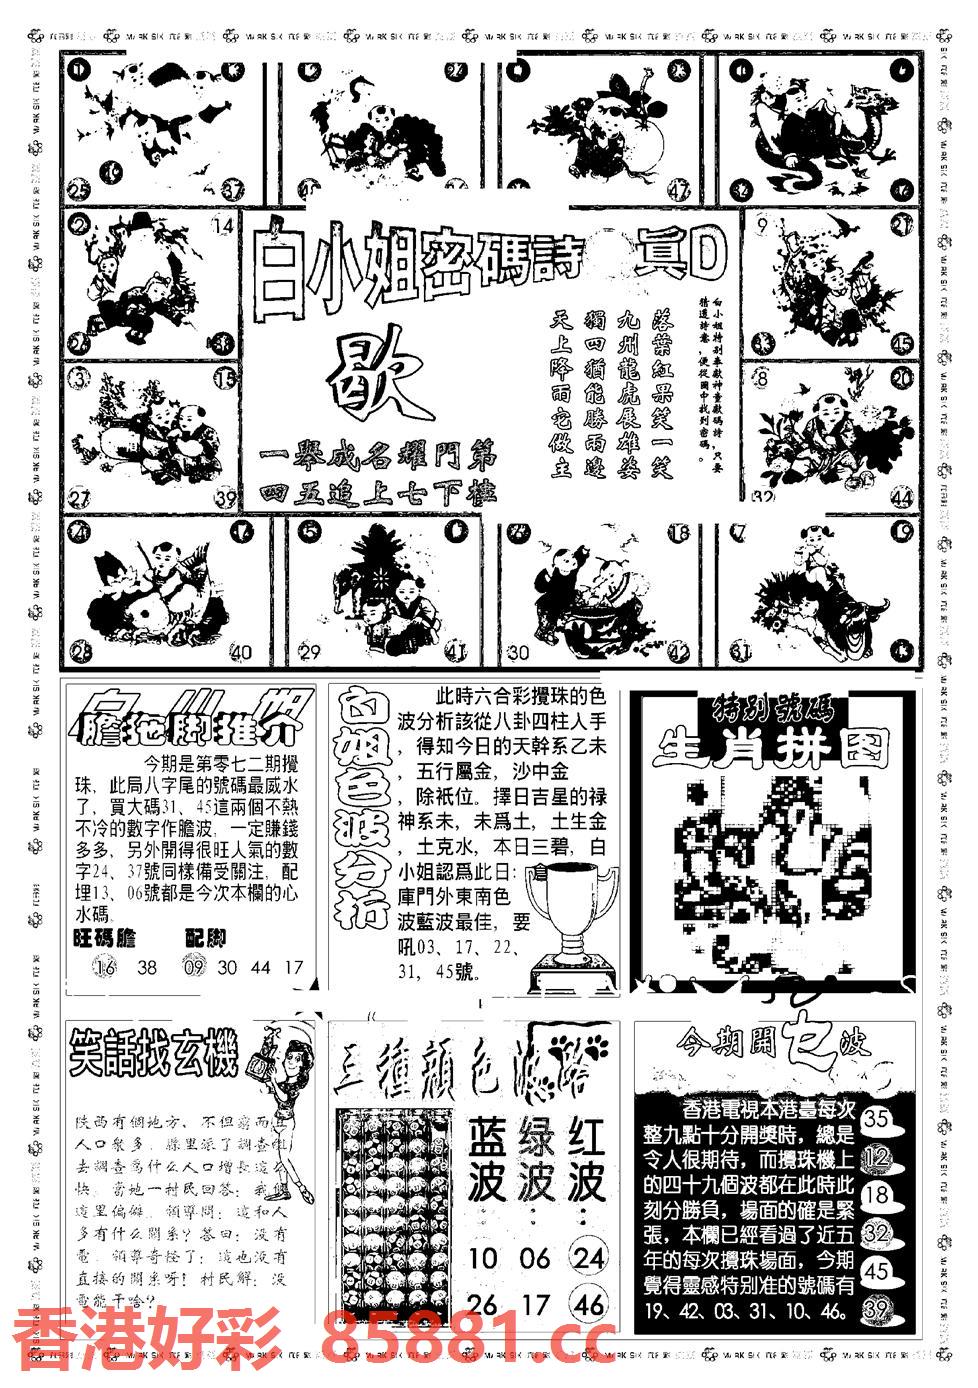 25
37
47
白小姐密碼詩
真D
14
歇
一舉成名耀門第
四五追上七下樓
白小姐特别奉獻神童獻碼詩,只要
猜透詩意,便從圖中找到密碼。
落葉紅果笑一笑
九州龍虎展雄姿
獨四猶能勝兩邊
天上降雨它做主
9
21
45
3
15
27
39
8
20
32
44
28
40
5
29
41
18
30
42
7
19
31
膽拖脚推介
今期是第零七二期攪
珠，此局八字尾的號碼最威水
了，買大碼31、45這兩個不熱
不冷的數字作膽波，一定賺錢
多多，另外開得很旺人氣的數
字24、37號同樣備受關注，配
埋13、06號都是今次本欄的心
水碼。
旺碼膽 配脚
16 38 09 30 44 17
白姐色波分析
此時六合彩攪珠的色
波分析該從八卦四柱人手
，得知今日的天幹系乙未
，五行屬金，沙中金
，除祇位。擇日吉星的禄
神系未，未爲土，土生金
，土克水，本日三碧，白
小姐認爲此日：倉
庫門外東南色
波藍波最佳，要
吼03、17、22、
31、45號。
特别號碼
生肖拼图
笑話找玄機
陕西有個地方、不但窮而且
人口衆多，縣里派了調查組
去調查爲什么人口增長這么
快，當地一村民回答：我們
這里偏僻，領導問：這和人
多有什么關系？答曰：没有
電，領導奇怪了：這也没有
直接的關系呀！村民解：没
電能干啥？
三種顔色波路
蓝波： 绿波： 红波：
10 06 24
26 17 46
今期開乜波
香港電視本港臺每次
整九點十分開獎時，總是
令人很期待，而攪珠機上
的四十九個波都在此時此
刻分勝負，場面的確是緊
張，本欄已經看過了近五
年的每次攪珠場面，今期
覺得靈感特别准的號碼有
19、42、03、31、10、46。
35
12
18
32
45
39
香港好彩 85881.cc